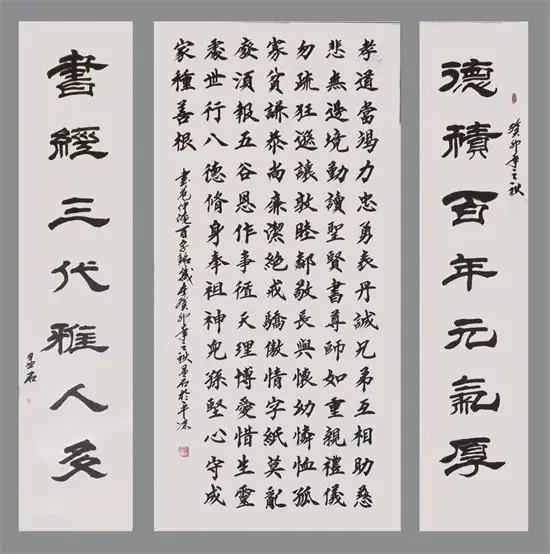 德積百年元氣厚
癸卯年之秋
孝道當竭力忠勇表丹誠兄弟互相助慈
悲無邊境勤讀聖賢書尊師如重親禮儀
勿疏狂遜讓敦睦鄰敬長與懷幼憐恤孤
寡貧謙恭尚廉潔絕戒驕傲情字紙莫亂
廢須報五谷恩作事循天理博愛惜生靈
處世行八德脩身奉祖神兒孫堅心守成
家種善根
書范仲淹百字銘歲在癸卯年之秋 石於平涼
書經三代雅人多
石